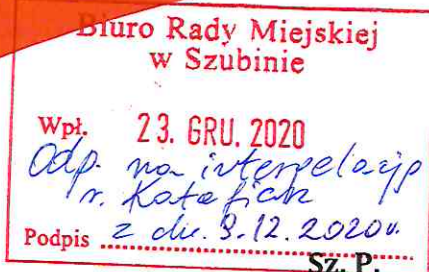 Biuro Rady Miejskiej
w Szubinie
Wpł. 23. GRU. 2020
Odp. na interpelację
r. Katafiasz
Podpis z dn. 9.12.2020r.
Sz. P.